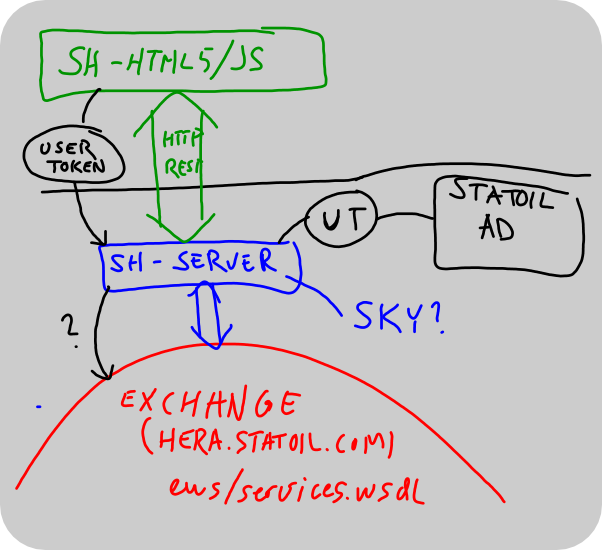 SH-HTML5/JS
USER
TOKEN
HTTP
REST
UT
STATOIL
AD
SH-SERVER
SKY?
?
EXCHANGE
(HERA.STATOIL.COM)
ews/services.wsdl